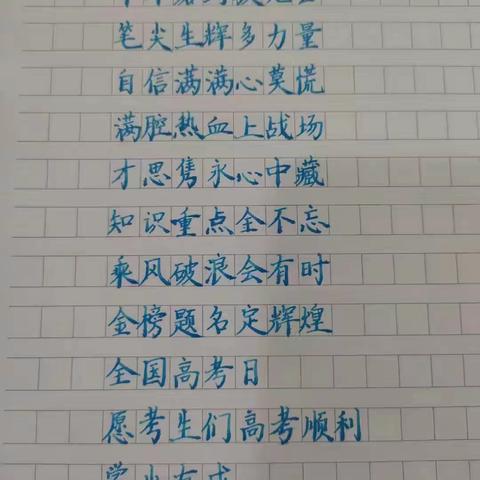 笔尖生辉多力量
自信满满心莫慌
满腔热血上战场
才思隽永心中藏
知识重点全不忘
乘风破浪会有时
金榜题名定辉煌
全国高考日
愿考生们高考顺利
学业有成